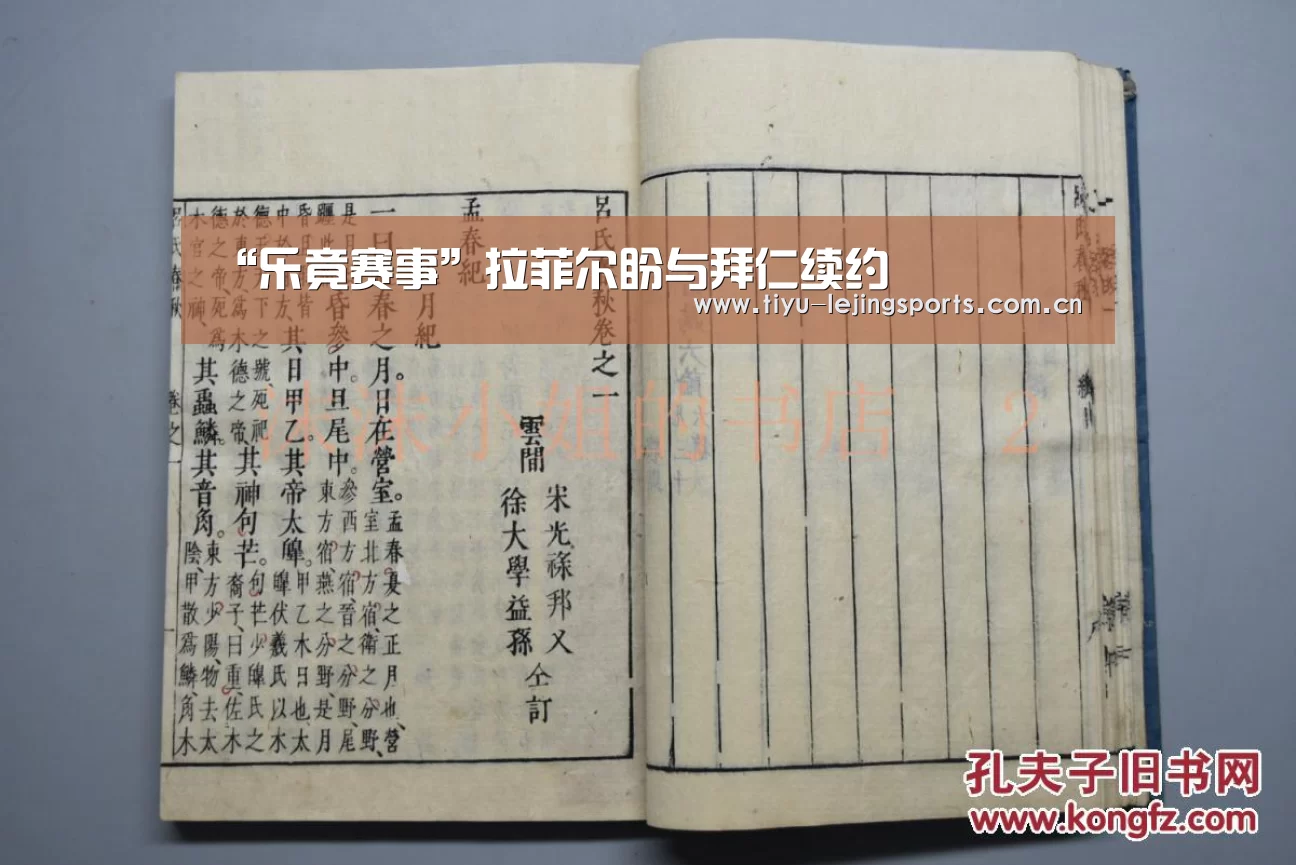 “乐竞赛事”拉菲尔盼与拜仁续约
www.tiyu-lejingsports.com.cn
沫沫小姐的书店 2
呂氏春秋卷之一
雲間
宋光祿邦乂
徐大學益孫
仝訂
孟春紀
月紀
一曰孟春之月。日在營室。孟春夏之正月也、營
室北方宿、衛之分野、
是月昏參中。旦尾中。參西方宿、晉之分野、尾
東方宿、燕之分野、是月
昏旦時皆中於南方。其日甲乙其帝太皞。甲乙木日也、太
皞伏羲氏以木
德王天下之號、死祀
於東方、爲木德之帝、其神句芒。句芒少皞氏之
裔子、曰重、佐木
德之帝、死爲
木官之神、其蟲鱗。其音角。東方少陽、物去太
陰、甲散爲鱗、角、木
呂氏春秋
卷之一
一
孔夫子旧书网
www.kongfz.com